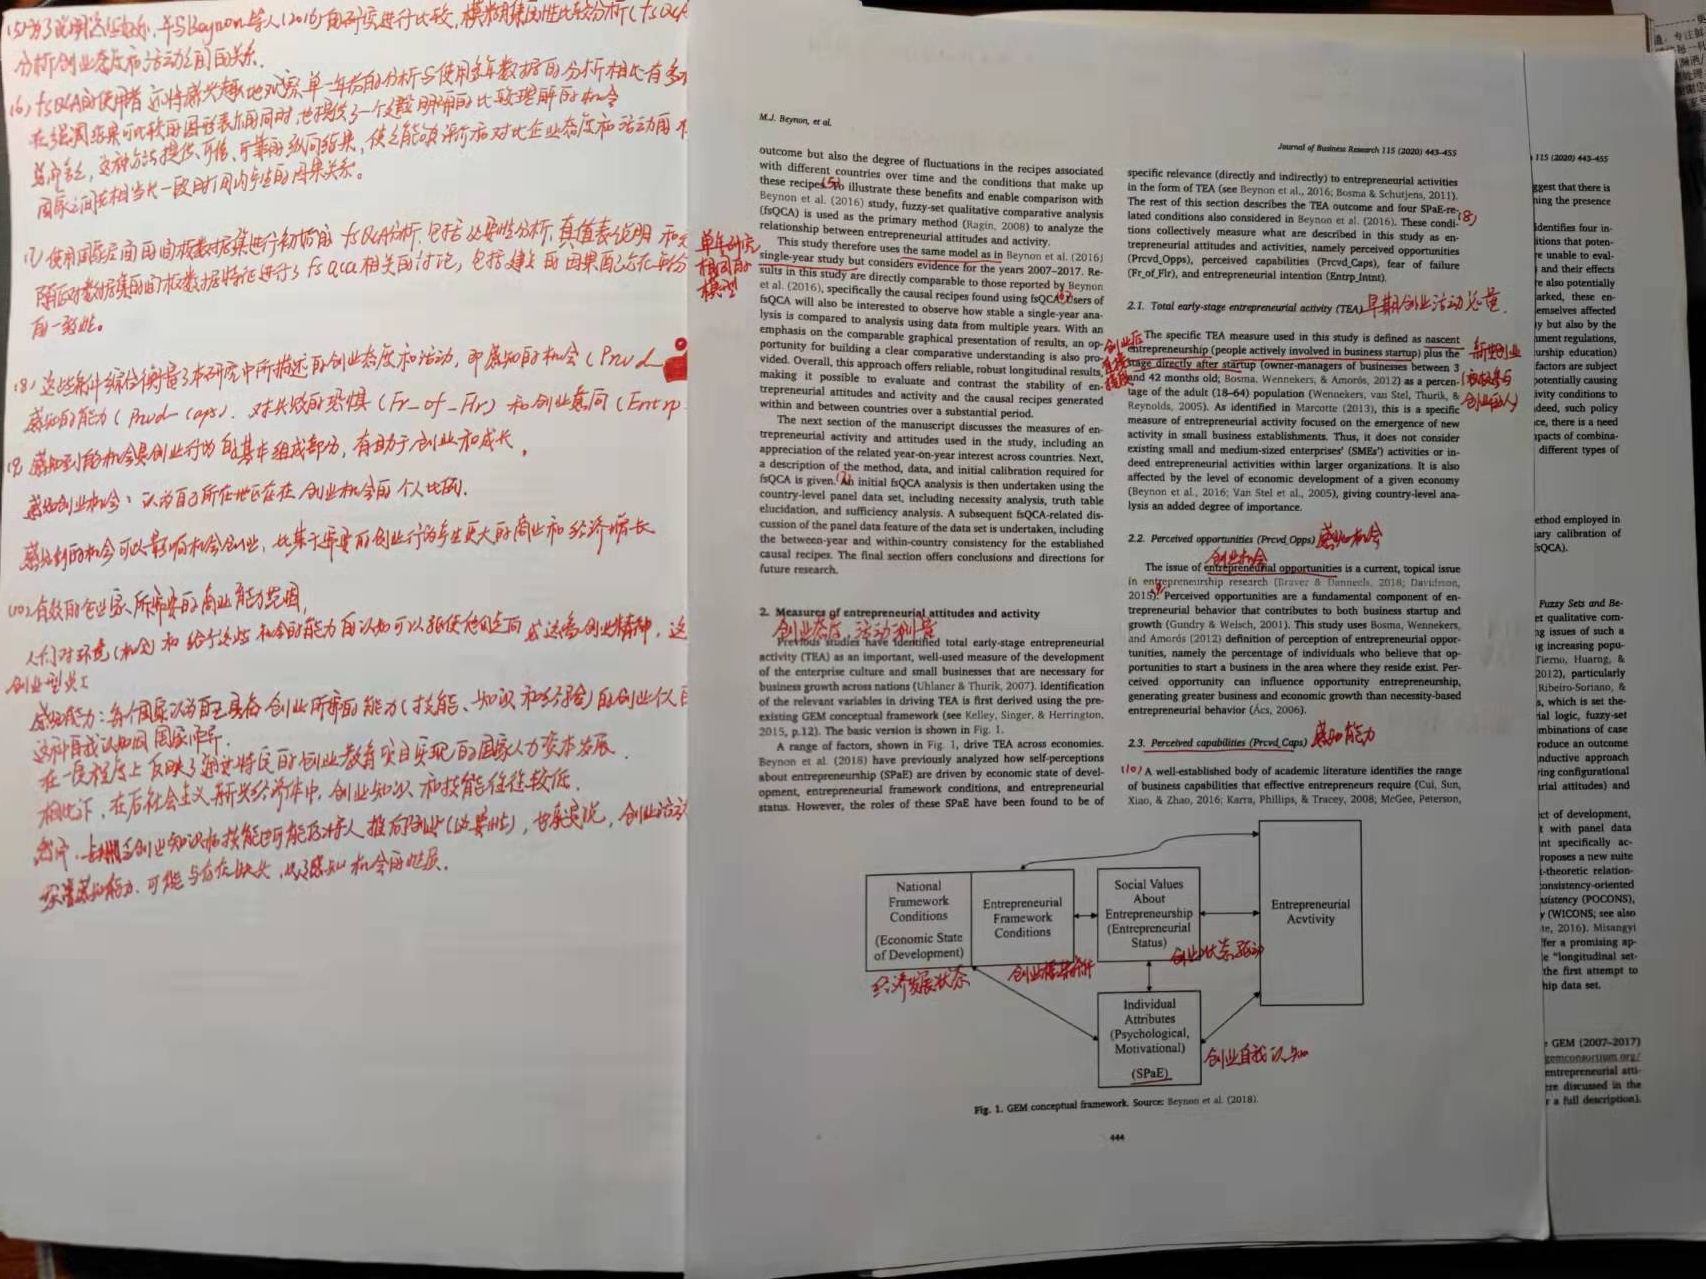 (5)为了说明这些好处,并与Beynon等人(2016)的研究进行比较,模糊集定性比较分析(fsQCA
分析创业态度和活动之间的关系.
(6) fsQCA的使用者还将感兴趣地观察单一年份的分析与使用多年数据的分析相比有多
在强调结果可比较的图形表示的同时,也提供了一个建立明确的比较理解的机会
总而言之,这种方法提供可信、可靠的纵向结果,使之能够评价和对比企业态度和活动的
国家之间在相当长一段时间内产生的因果关系。
(7)使用国家层面的面板数据集进行初始的 fsQCA分析,包括必要性分析,真值表说明 和
随后对数据集的面板数据特征进行了 fsQCA 相关的讨论,包括建立的因果配方在年份
的一致性。
(8) 这些条件综合衡量了本研究中所描述的创业态度和活动,即感知的机会(Prvd
感知的能力(Prvd-Caps).对失败的恐惧(Fr_of_Flr)和创业意向(Entrp
(9. 感知到的机会是创业行为的基本组成部分,有助于创业和成长.
感知创业机会:认为自己所在地区存在创业机会的个人比例.
感知到的机会可以影响机会创业,比基于需要的创业行为产生更大的商业和经济增长
(10)有效的企业家所需要的商业能力范围,
人们对环境(机会)和给予这些机会的能力的认知可以驱使他们走向或远离创业精神,这
创业型员工
感知能力:每个国家认为自己具备创业所需的能力(技能、知识和经验)的创业个人百
这种自我认知因国家而异.
在一定程度上反映了通过特定的创业教育项目实现的国家人力资本发展.
相比下,在后社会主义新兴经济体中,创业知识和技能往往较低.
M.J. Beynon, et al.
Journal of Business Research 115 (2020) 443–455
outcome but also the degree of fluctuations in the recipes associated
with different countries over time and the conditions that make up
these recipes.(5)To illustrate these benefits and enable comparison with
Beynon et al. (2016) study, fuzzy-set qualitative comparative analysis
(fsQCA) is used as the primary method (Ragin, 2008) to analyze the
relationship between entrepreneurial attitudes and activity.
This study therefore uses the same model as in Beynon et al. (2016)
single-year study but considers evidence for the years 2007–2017. Re-
sults in this study are directly comparable to those reported by Beynon
et al. (2016), specifically the causal recipes found using fsQCA. Users of
fsQCA will also be interested to observe how stable a single-year ana-
lysis is compared to analysis using data from multiple years. With an
emphasis on the comparable graphical presentation of results, an op-
portunity for building a clear comparative understanding is also pro-
vided. Overall, this approach offers reliable, robust longitudinal results,
making it possible to evaluate and contrast the stability of en-
trepreneurial attitudes and activity and the causal recipes generated
within and between countries over a substantial period.
The next section of the manuscript discusses the measures of en-
trepreneurial activity and attitudes used in the study, including an
appreciation of the related year-on-year interest across countries. Next,
a description of the method, data, and initial calibration required for
fsQCA is given. An initial fsQCA analysis is then undertaken using the
country-level panel data set, including necessity analysis, truth table
elucidation, and sufficiency analysis. A subsequent fsQCA-related dis-
cussion of the panel data feature of the data set is undertaken, including
the between-year and within-country consistency for the established
causal recipes. The final section offers conclusions and directions for
future research.
单年研究
相同的
模型
2. Measures of entrepreneurial attitudes and activity
创业态度、活动测量
Previous studies have identified total early-stage entrepreneurial
activity (TEA) as an important, well-used measure of the development
of the enterprise culture and small businesses that are necessary for
business growth across nations (Uhlaner & Thurik, 2007). Identification
of the relevant variables in driving TEA is first derived using the pre-
existing GEM conceptual framework (see Kelley, Singer, & Herrington,
2015, p.12). The basic version is shown in Fig. 1.
A range of factors, shown in Fig. 1, drive TEA across economies.
Beynon et al. (2018) have previously analyzed how self-perceptions
about entrepreneurship (SPaE) are driven by economic state of devel-
opment, entrepreneurial framework conditions, and entrepreneurial
status. However, the roles of these SPaE have been found to be of
specific relevance (directly and indirectly) to entrepreneurial activities
in the form of TEA (see Beynon et al., 2016; Bosma & Schutjens, 2011).
The rest of this section describes the TEA outcome and four SPaE-re-
lated conditions also considered in Beynon et al. (2016). These condi-(8)
tions collectively measure what are described in this study as en-
trepreneurial attitudes and activities, namely perceived opportunities
(Prcvd_Opps), perceived capabilities (Prcvd_Caps), fear of failure
(Fr_of_Flr), and entrepreneurial intention (Entrp_Intnt).
2.1. Total early-stage entrepreneurial activity (TEA) 早期创业活动总量.
The specific TEA measure used in this study is defined as nascent
entrepreneurship (people actively involved in business startup) plus the
stage directly after startup (owner-managers of businesses between 3
and 42 months old; Bosma, Wennekers, & Amorós, 2012) as a percen-
tage of the adult (18–64) population (Wennekers, van Stel, Thurik, &
Reynolds, 2005). As identified in Marcotte (2013), this is a specific
measure of entrepreneurial activity focused on the emergence of new
activity in small business establishments. Thus, it does not consider
existing small and medium-sized enterprises' (SMEs') activities or in-
deed entrepreneurial activities within larger organizations. It is also
affected by the level of economic development of a given economy
(Beynon et al., 2016; Van Stel et al., 2005), giving country-level ana-
lysis an added degree of importance.
创业后
直接
阶段
新生创业
(积极参与
创业的人)
2.2. Perceived opportunities (Prcvd_Opps) 感知机会
创业机会
The issue of entrepreneurial opportunities is a current, topical issue
in entrepreneurship research (Braver & Danneels, 2018; Davidsson,
2015). Perceived opportunities are a fundamental component of en-
trepreneurial behavior that contributes to both business startup and
growth (Gundry & Welsch, 2001). This study uses Bosma, Wennekers,
and Amorós (2012) definition of perception of entrepreneurial oppor-
tunities, namely the percentage of individuals who believe that op-
portunities to start a business in the area where they reside exist. Per-
ceived opportunity can influence opportunity entrepreneurship,
generating greater business and economic growth than necessity-based
entrepreneurial behavior (Ács, 2006).
2.3. Perceived capabilities (Prcvd_Caps) 感知能力
(10) A well-established body of academic literature identifies the range
of business capabilities that effective entrepreneurs require (Cui, Sun,
Xiao, & Zhao, 2016; Karra, Phillips, & Tracey, 2008; McGee, Peterson,
National
Framework
Conditions
(Economic State
of Development)
经济发展状态
Entrepreneurial
Framework
Conditions
创业框架条件
Social Values
About
Entrepreneurship
(Entrepreneurial
Status)
创业状态驱动
Entrepreneurial
Acvtivity
Individual
Attributes
(Psychological,
Motivational)
(SPaE)
创业自我认知
Fig. 1. GEM conceptual framework. Source: Beynon et al. (2018).
444
115 (2020) 443–455
ggest that there is
ning the presence
identifies four in-
itions that poten-
re unable to eval-
and their effects
re also potentially
arked, these en-
emselves affected
ly but also by the
nment regulations,
urship education)
factors are subject
potentially causing
ivity conditions to
deed, such policy
ce, there is a need
apacts of combina-
different types of
ethod employed in
ary calibration of
sQCA).
Fuzzy Sets and Be-
et qualitative com-
ng issues of such a
g increasing popu-
Tierno, Huarng, &
2012), particularly
Ribeiro-Soriano, &
s, which is set the-
ial logic, fuzzy-set
mbinations of case
roduce an outcome
nductive approach
ring configurational
urial attitudes) and
ct of development,
t with panel data
nt specifically ac-
roposes a new suite
t-theoretic relation-
onsistency-oriented
nsistency (POCONS),
y (WICONS; see also
te, 2016). Misangyi
ffer a promising ap-
e "longitudinal set-
the first attempt to
hip data set.
GEM (2007–2017)
gemconsortium.org/
entrepreneurial atti-
ere discussed in the
r a full description).